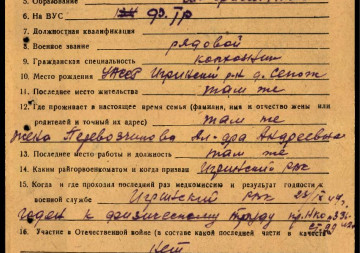 5. Образование
6. На ВУС физ. Тр
7. Должностная квалификация
8. Военное звание рядовой
9. Гражданская специальность колхозник
10. Место рождения УАССР Игринский р-н д. Сепож
11. Последнее место жительства там же
12. Где проживает в настоящее время семья (фамилия, имя и отчество жены или
родителей и точный их адрес) там же
жена Перевозчикова Ал-дра Андреевна
13. Последнее место работы и должность там же
14. Каким райгорвоенкоматом и когда призван Игринский РВК
15. Когда и где проходил последний раз медкомиссию и результат годности к
военной службе Игринский РВК
годен к физическому труду пр. НКО 336
16. Участие в Отечественной войне (в составе какой последней части и качестве
Нет